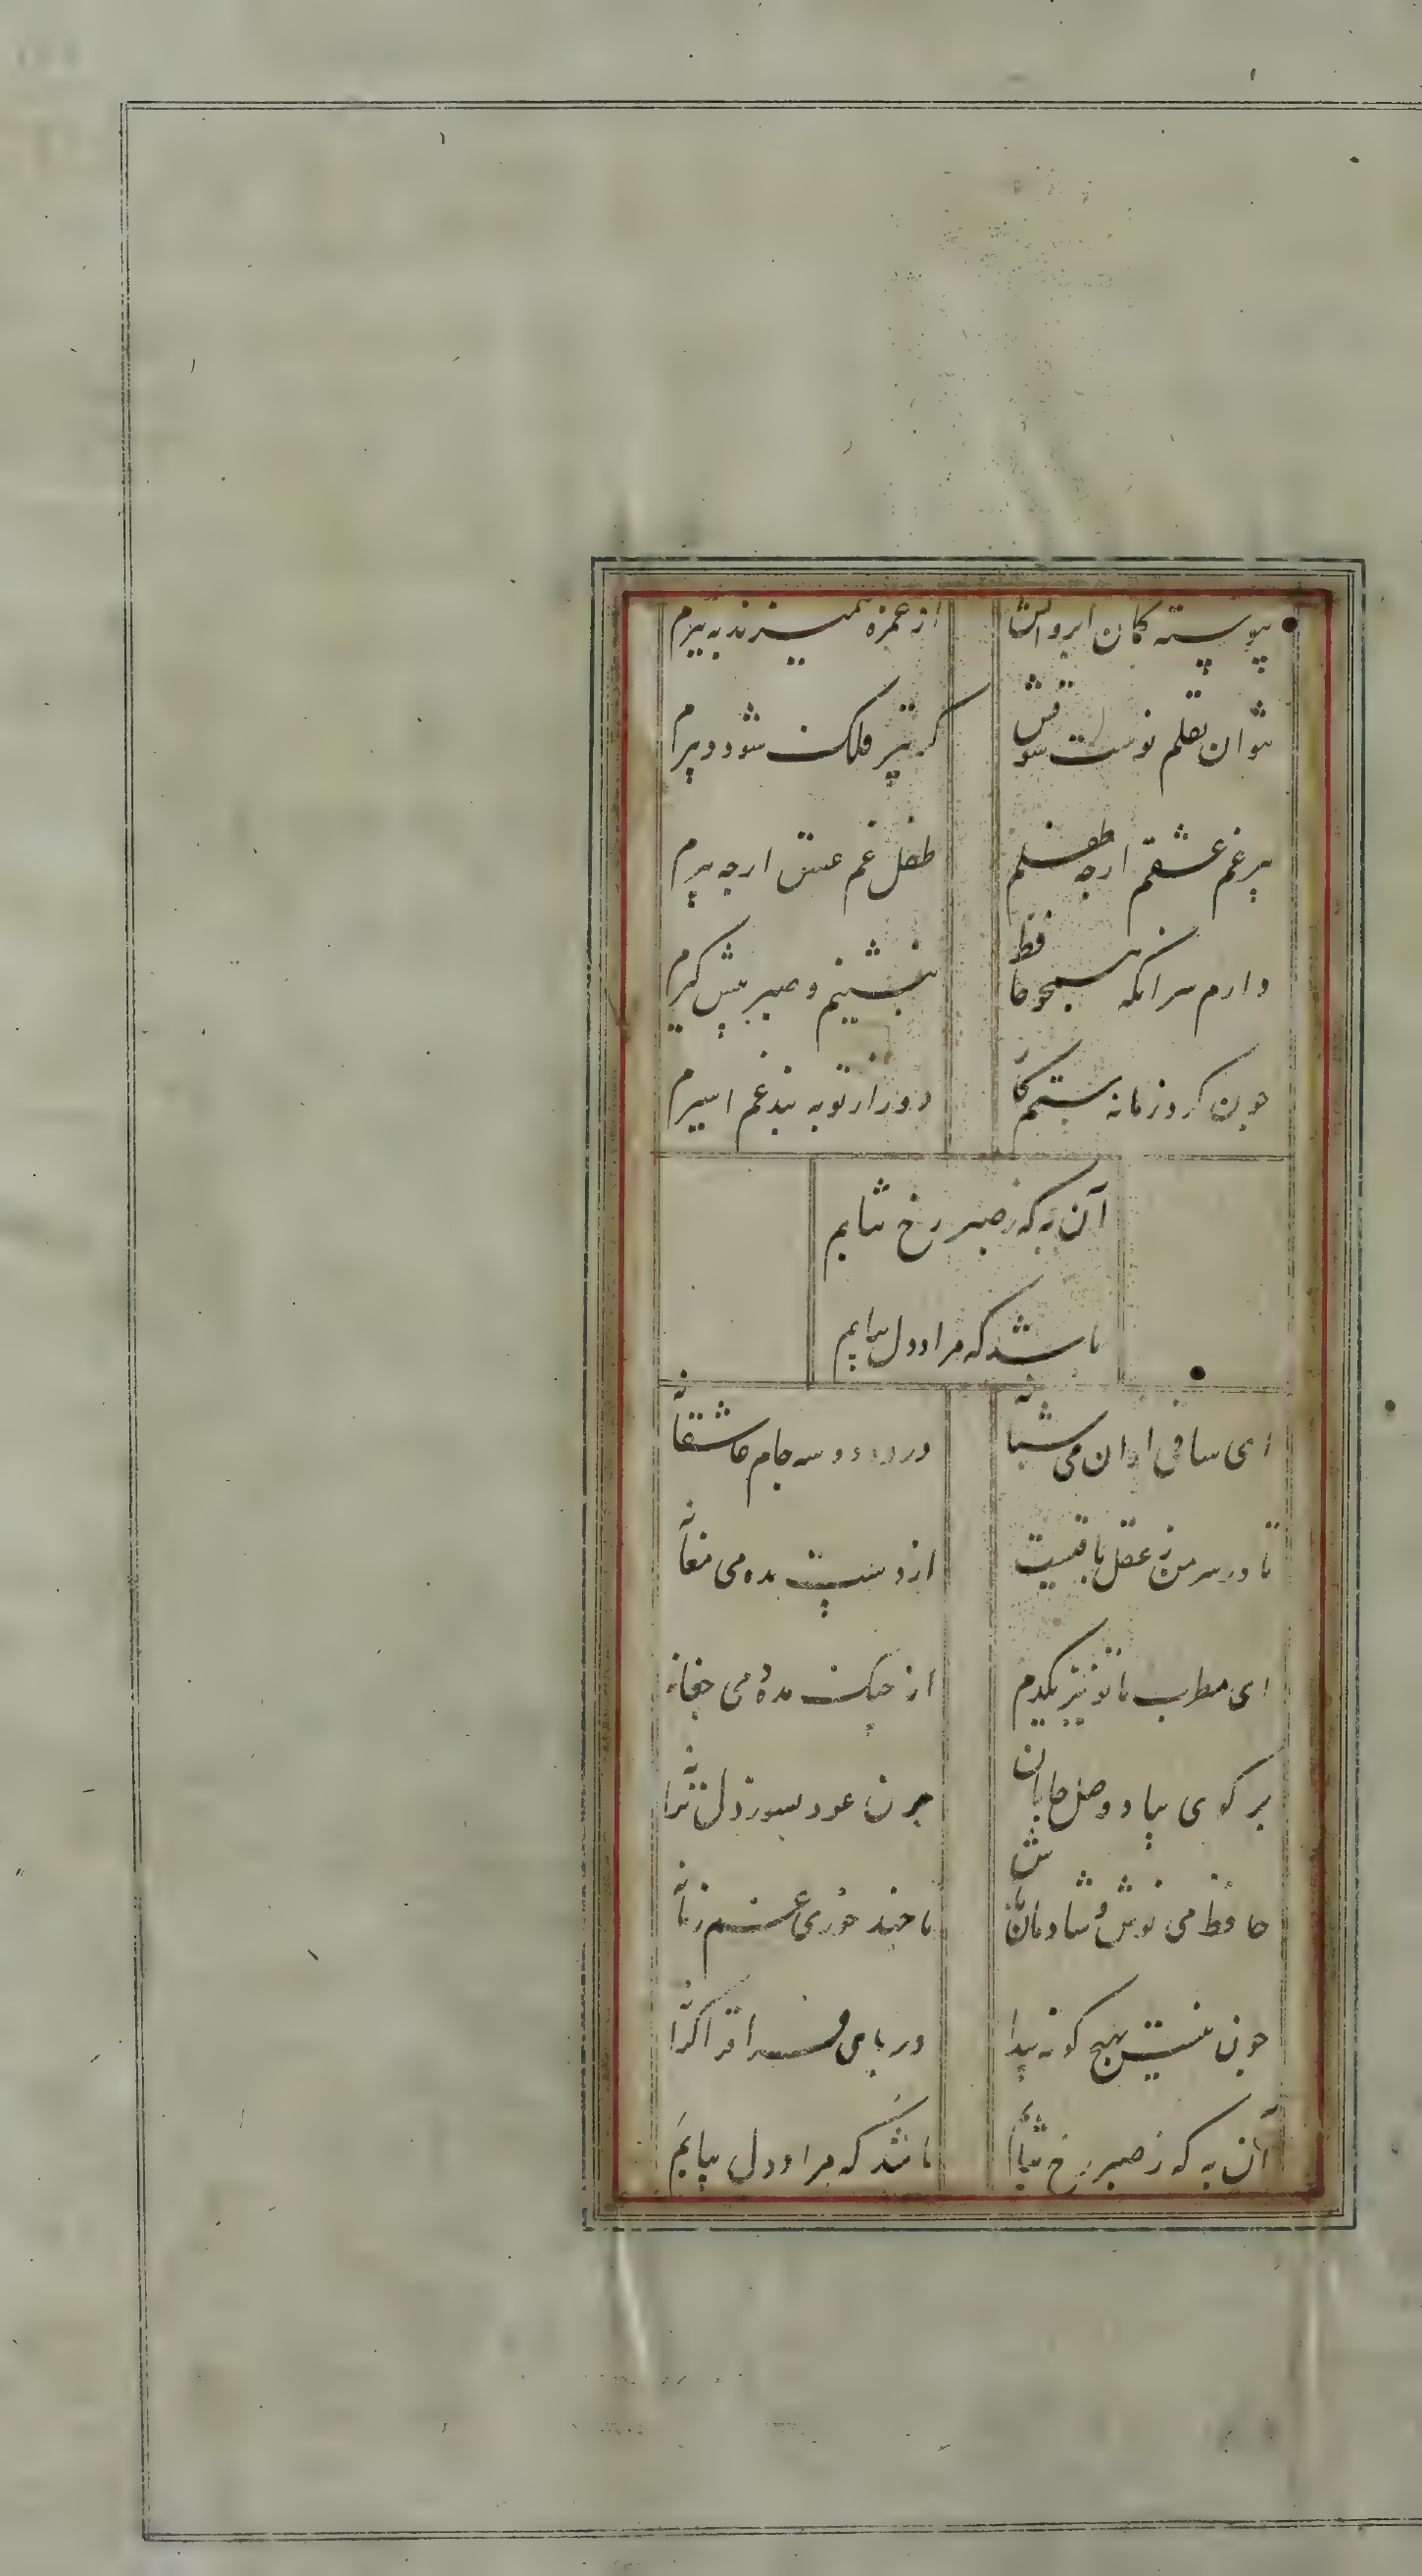 پیوسته کمان ابروانش از غمزه همیزند به تیرم
نتوان بقلم نوشت شوقش کر تیر فلک شود دبیرم
پیر غم عشقم ارچه طفلم طفل غم عشق ارچه پیرم
دارم سر آنکه همچو حافظ بنشینم و صبر پیش کیرم
چون کرد زمانه ستمکار دور از تو به بند غم اسیرم
آن به که ز صبر رخ نتابم
باشد که مراد دل بیابم
ای ساقی ازان می شبانه در ده دو سه جام عاشقانه
تا در سر من ز عقل باقیست از دست مده می مغانه
ای مطرب با تو نیز یکدم از چنک مده می چغانه
بر کوی بیاد وصل جانان چون عود بسوز دل ترانه
حافظ می نوش و شادمان باش تا چند خوری غم زمانه
چون نیست بهیچ کونه پیدا دریای فراق را کرانه
آن به که ز صبر رخ نتابم باشد که مراد دل بیابم